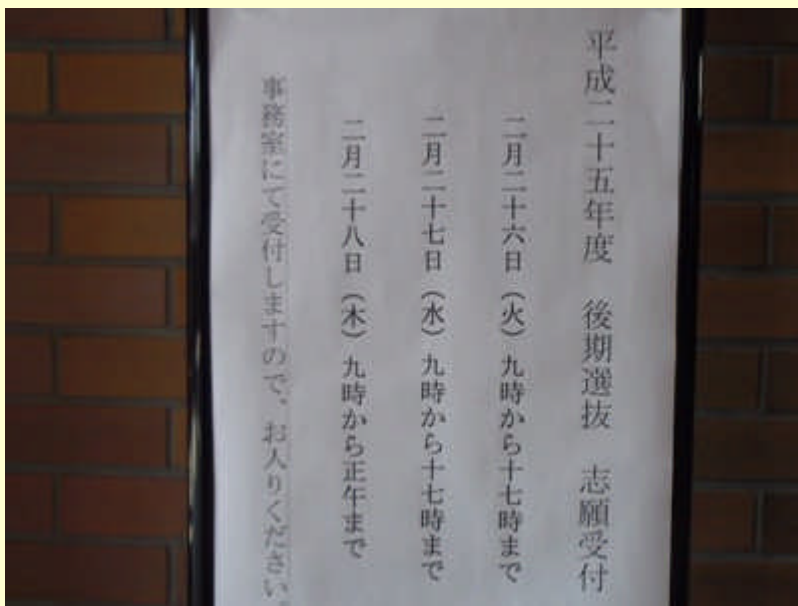 平成二十五年度　後期選抜　志願受付
二月二十六日（火）九時から十七時まで
二月二十七日（水）九時から十七時まで
二月二十八日（木）九時から正午まで
事務室にて受付しますので、お入りください。